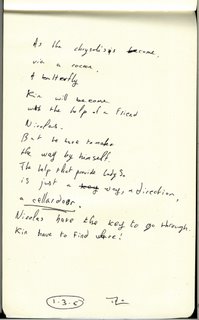 As the chrysolisis become
via a cocon
A butterfly
Kin will become
with the help of a Friend
Nicolas.
But he have to make
the way by himself.
The help that provide Lady So
is just a way, a direction,
a cellardoor.
Nicolas have the key to go through.
Kin have to find where!
1.3.c